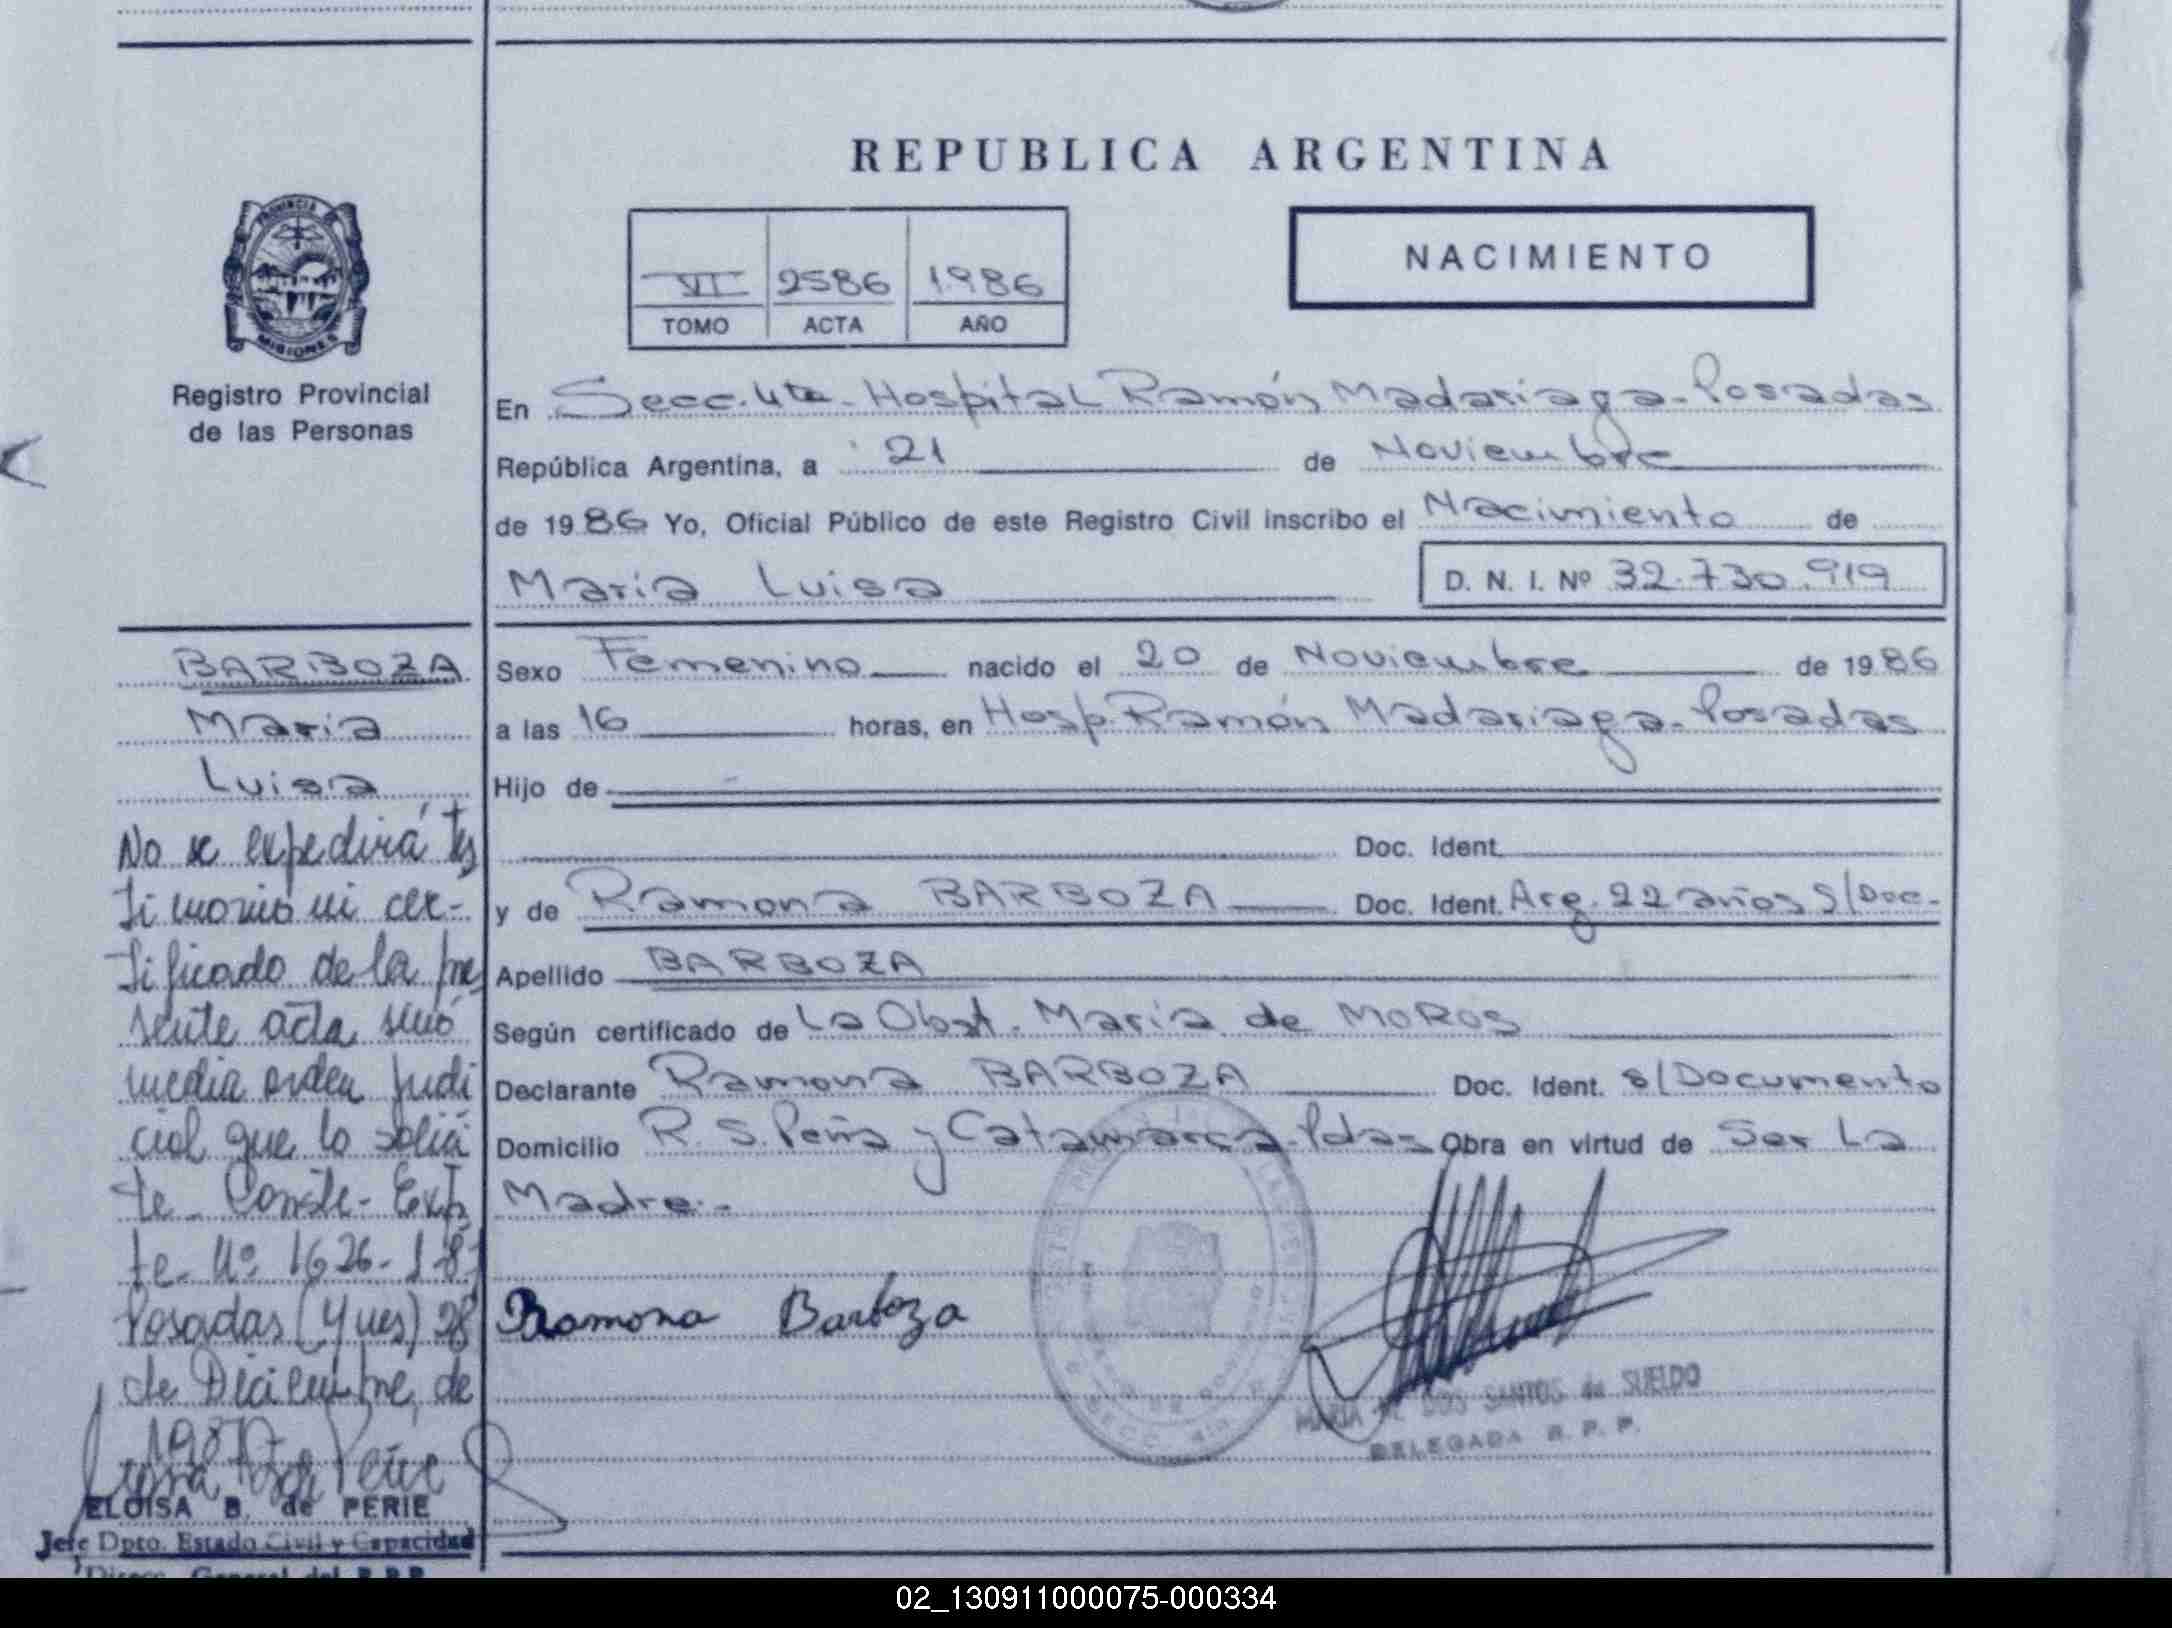 REPUBLICA ARGENTINA
PROVINCIA DE
MISIONES
Registro Provincial
de las Personas
VI 2586 1986
TOMO ACTA AÑO
NACIMIENTO
En Secc. 4ta - Hospital Ramón Madariaga - Posadas
República Argentina, a 21 de Noviembre
de 1986 Yo, Oficial Público de este Registro Civil inscribo el Nacimiento de
Maria Luisa D. N. I. Nº 32.730.919
BARBOZA
Maria
Luisa
Sexo Femenino nacido el 20 de Noviembre de 1986
a las 16 horas, en Hosp. Ramón Madariaga - Posadas
Hijo de
Doc. Ident.
y de Ramona BARBOZA Doc. Ident. Arg. 22 años S/Doc.-
Apellido BARBOZA
Según certificado de La Obst. Maria de MOROS
Declarante Ramona BARBOZA Doc. Ident. s/Documento
Domicilio R. S. Peña y Catamarca - Pdas Obra en virtud de Ser La
Madre.-
Ramona Barboza
MARIA DOS SANTOS de SUELDO
DELEGADA R. P. P.
No se expedirá tes
timonio ni cer-
tificado de la pre
sente acta sinó
media orden judi
cial que lo solici
te - Conste - Exp
te - Nº 1626-1-87
Posadas (Mnes) 28
de Diciembre, de
1987-
ELOISA B. de PERIE
Jefe Dpto. Estado Civil y Capacidad
Direcc. General del R.P.P.
02_130911000075-000334